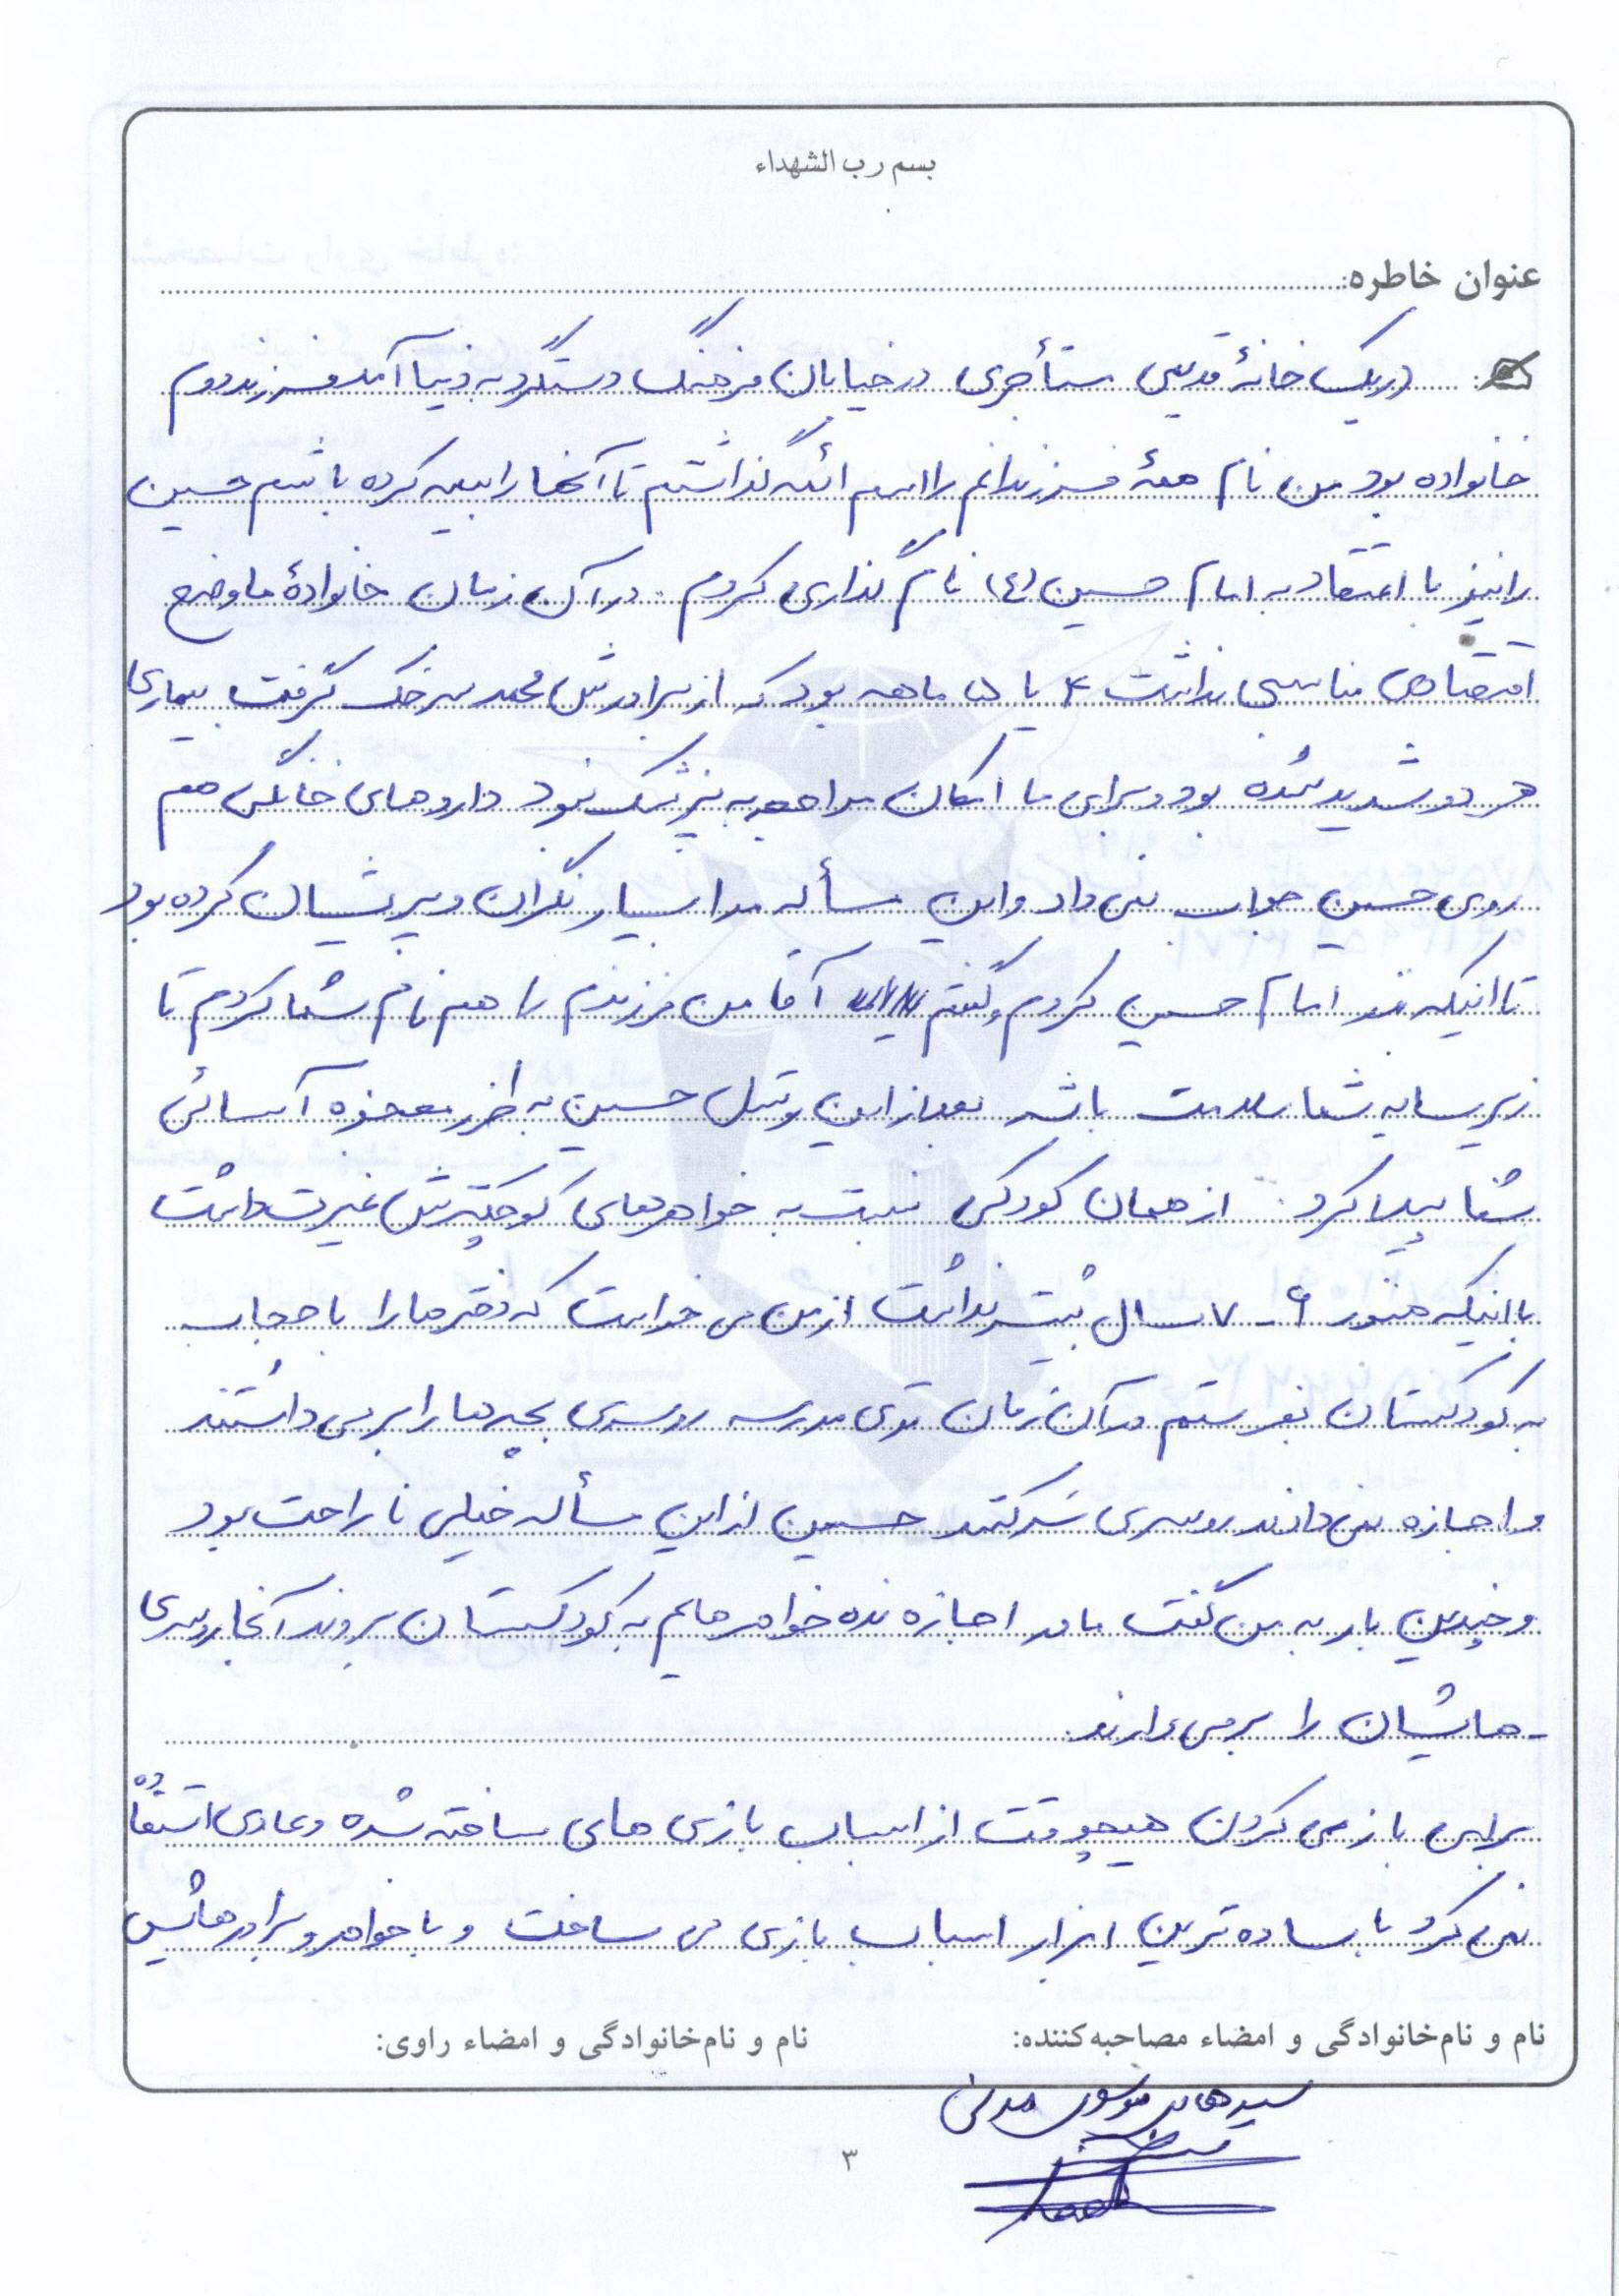 بسم رب الشهداء
عنوان خاطره:
در یک خانهٔ قدیمی مستأجری در خیابان فرهنگ دستگرد به دنیا آمد و فرزند دوم
خانواده بود من نام همهٔ فرزندانم را اسم ائمه گذاشتم تا آنها را بیمه کرده باشم حسین
را نیز با اعتقاد به امام حسین (ع) نام گذاری کردم. در آن زمان خانوادهٔ ما وضع
اقتصادی مناسبی نداشت ۴ یا ۵ ماهه بود که از برادرش محمد سرخک گرفت بیماری
هر دو شدید شده بود و برای ما امکان مراجعه به پزشک نبود داروهای خانگی هم
روی حسین جواب نمی داد و این مسأله مرا بسیار نگران و پریشان کرده بود
تا اینکه نذر امام حسین کردم و گفتم آقا من فرزندم را هم نام شما کردم تا
زیر سایه شما سلامت باشد بعد از این توسل حسین به طرز معجزه آسائی
شفا پیدا کرد. از همان کودکی نسبت به خواهرهای کوچکترش غیرت داشت
با اینکه هنوز ۶-۷ سال بیشتر نداشت از من می خواست که دخترها را با حجاب
به کودکستان بفرستم در آن زمان توی مدرسه روسری بچه ها را بر می داشتند
و اجازه نمی دادند روسری سر کنند حسین از این مسأله خیلی ناراحت بود
و چندین بار به من گفت مادر اجازه نده خواهرهایم به کودکستان بروند آنجا روسری
-هایشان را بر می دارند.
برای بازی کردن هیچوقت از اسباب بازی های ساخته شده و عادی استفاده
نمی کرد با ساده ترین ابزار اسباب بازی می ساخت و با خواهر و برادرهائیش
نام و نام‌خانوادگی و امضاء مصاحبه‌کننده:
نام و نام‌خانوادگی و امضاء راوی:
سید هادی موسوی مدنی
۳